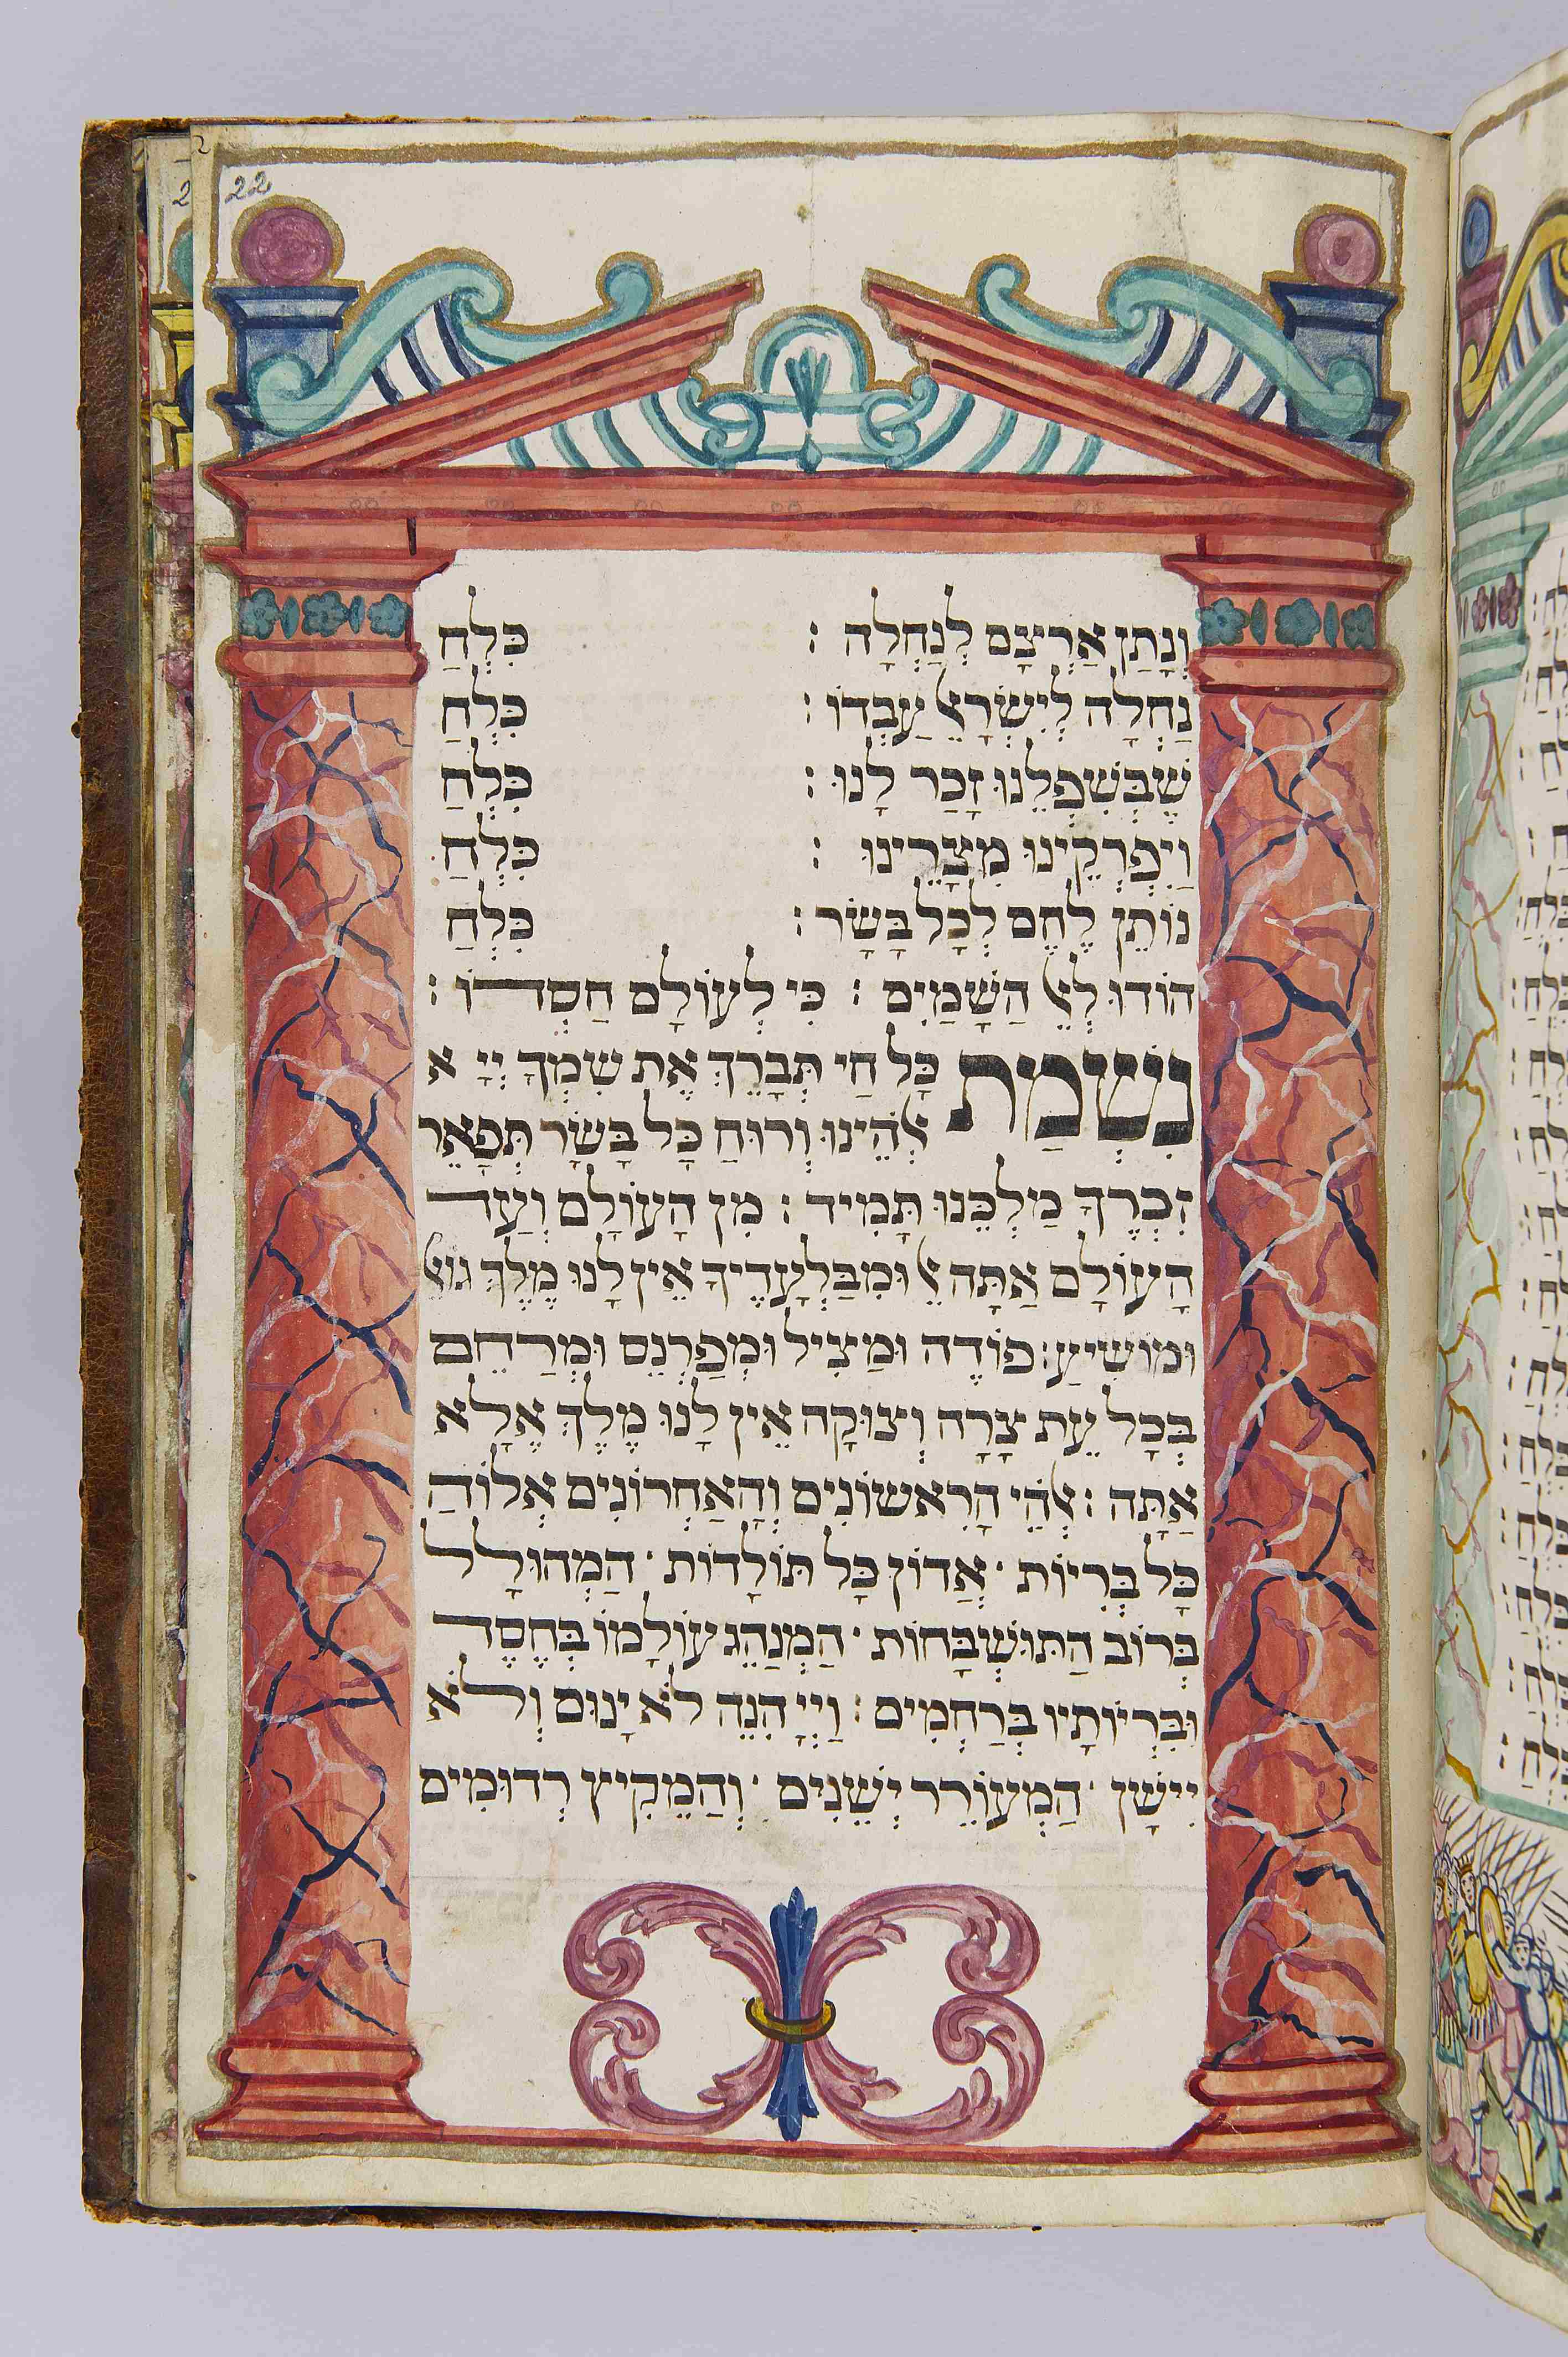 22
וְנָתַן אַרְצָם לְנַחְלָה : כִּלְחַ
נַחְלָה לְיִשְׂרָאֵל עַבְדּוֹ : כִּלְחַ
שֶׁבְּשִׁפְלֵנוּ זָכַר לָנוּ : כִּלְחַ
וַיִפְרְקֵינוּ מִצָרֵינוּ : כִּלְחַ
נוֹתֵן לֶחֶם לְכָל בָּשָׂר : כִּלְחַ
הוֹדוּ לְאֵל הַשָׁמַיִם : כִּי לְעוֹלָם חַסְדוֹ :
נִשְׁמַת כָּל חַי תְּבָרֵךְ אֶת שִׁמְךָ יְיָ א
אֱלֹהֵינוּ וְרוּחַ כָּל בָּשָׂר תְּפָאֵר
זִכְרְךָ מַלְכֵּנוּ תָּמִיד : מִן הָעוֹלָם וְעַד
הָעוֹלָם אַתָּה אֵל וּמִבַּלְעָדֶיךָ אֵין לָנוּ מֶלֶךְ גוֹאֵל
וּמוֹשִׁיעַ : פּוֹדֶה וּמַצִיל וּמְפַרְנֵס וּמְרַחֵם
בְּכָל עֵת צָרָה וְצוּקָה אֵין לָנוּ מֶלֶךְ אֶלָא
אַתָּה : אֱלֹהֵי הָרִאשׁוֹנִים וְהָאַחְרוֹנִים אֱלוֹהַּ
כָּל בְּרִיוֹת · אֲדוֹן כָּל תּוֹלָדוֹת · הַמְהוּלָל
בְּרוֹב הַתּוּשְׁבָּחוֹת · הַמְנַהֵג עוֹלָמוֹ בְּחֶסֶד
וּבְרִיוֹתָיו בְּרַחְמִים : וַיְיָ הִנֵה לֹא יָנוּם וְלֹא
יִישָׁן · הַמְעוֹרֵר יְשֵׁנִים · וְהַמֵקִיץ רְדוּמִים